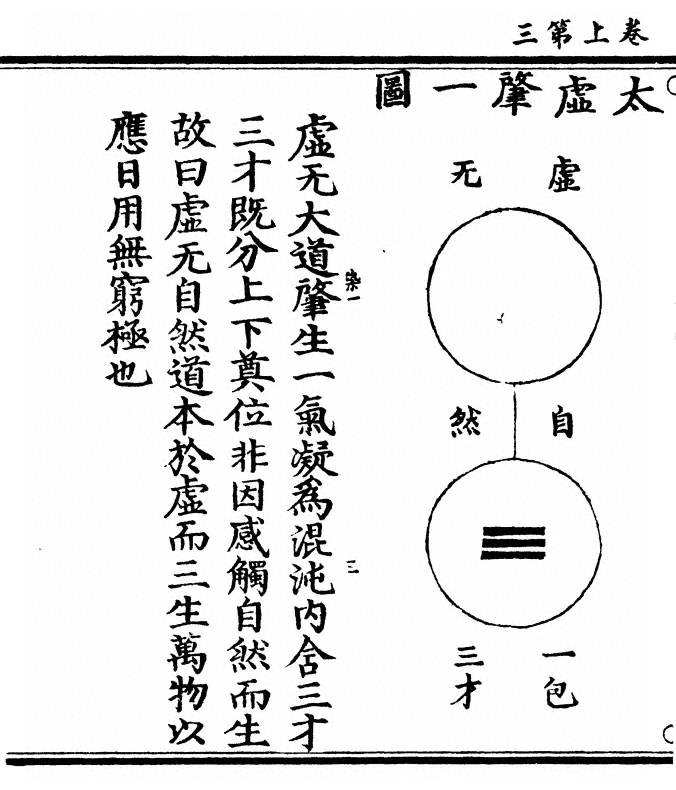 卷上第三
太虛肇一圖
虛无
自然
一包
三才
虛无大道肇生一氣凝爲混沌內含三才
三才既分上下奠位非因感觸自然而生
故曰虛无自然道本於虛而三生萬物以
應日用無窮極也
染一
三